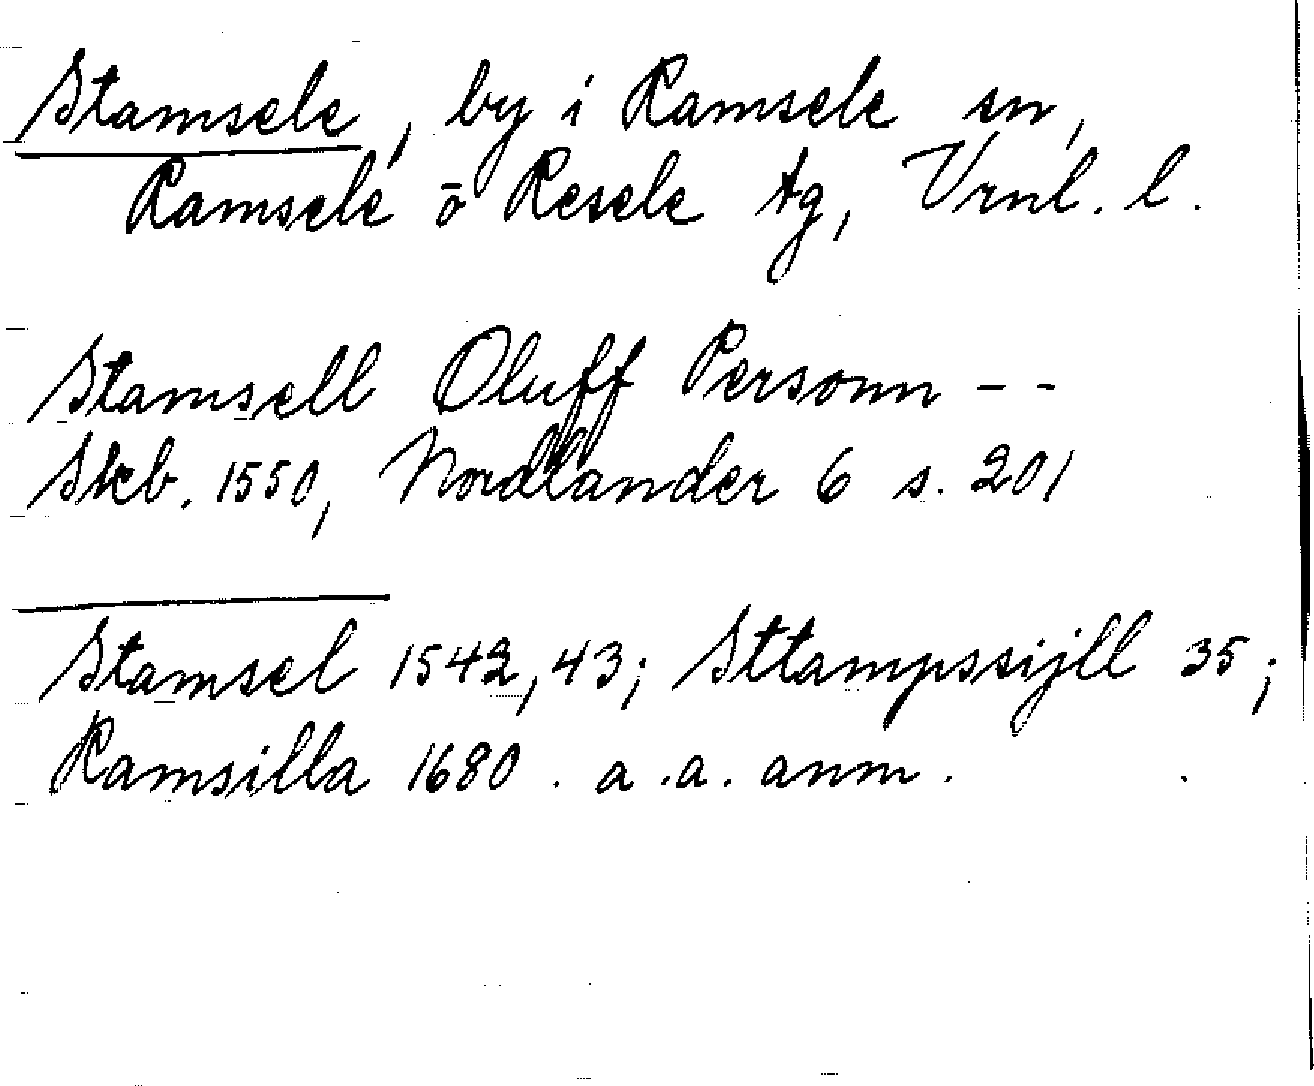 Stamsele, by i Ramsele sn,
Ramsele o Resele tg, Vrnl. l.
Stamsell Oluff Personn - -
Skb. 1550, Nordlander 6 s. 201
Stamsel 1542, 43; Sttampssijll 35;
Ramsilla 1680. a.a. anm.